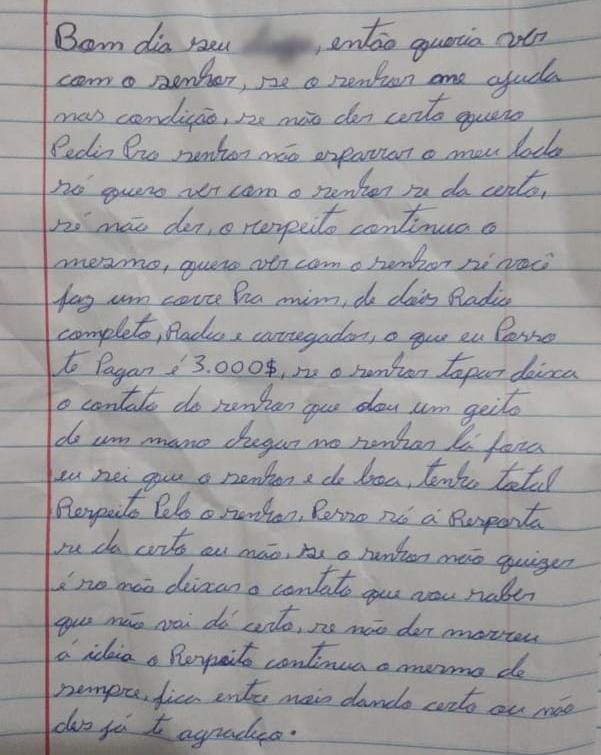 Bom dia seu , então queria ver
com o senhor, se o senhor me ajuda
nas condição, se não der certo quero
Pedir Pro senhor não esparrar o meu lado
só quero ver com o senhor se da certo,
sé não der, o respeito continua o
mesmo, quero ver com o senhor sé você
faz um corre Pra mim, de dois Radio
completo, Radio e carregador, o que eu Posso
te Pagar é 3.000$, se o senhor topar deixa
o contato do senhor que dou um geito
de um mano chegar no senhor lá fora
eu sei que o senhor e de boa, tenho total
Respeito Pelo o senhor, Pesso só á Resposta
se da certo ou não, se o senhor não quizer
é so não deixar o contato que vou saber
que não vai dá certo, se não der morreu
á idéia o Respeito continua o mesmo de
sempre, fica entre nois dando certo ou não
des já te agradiço.